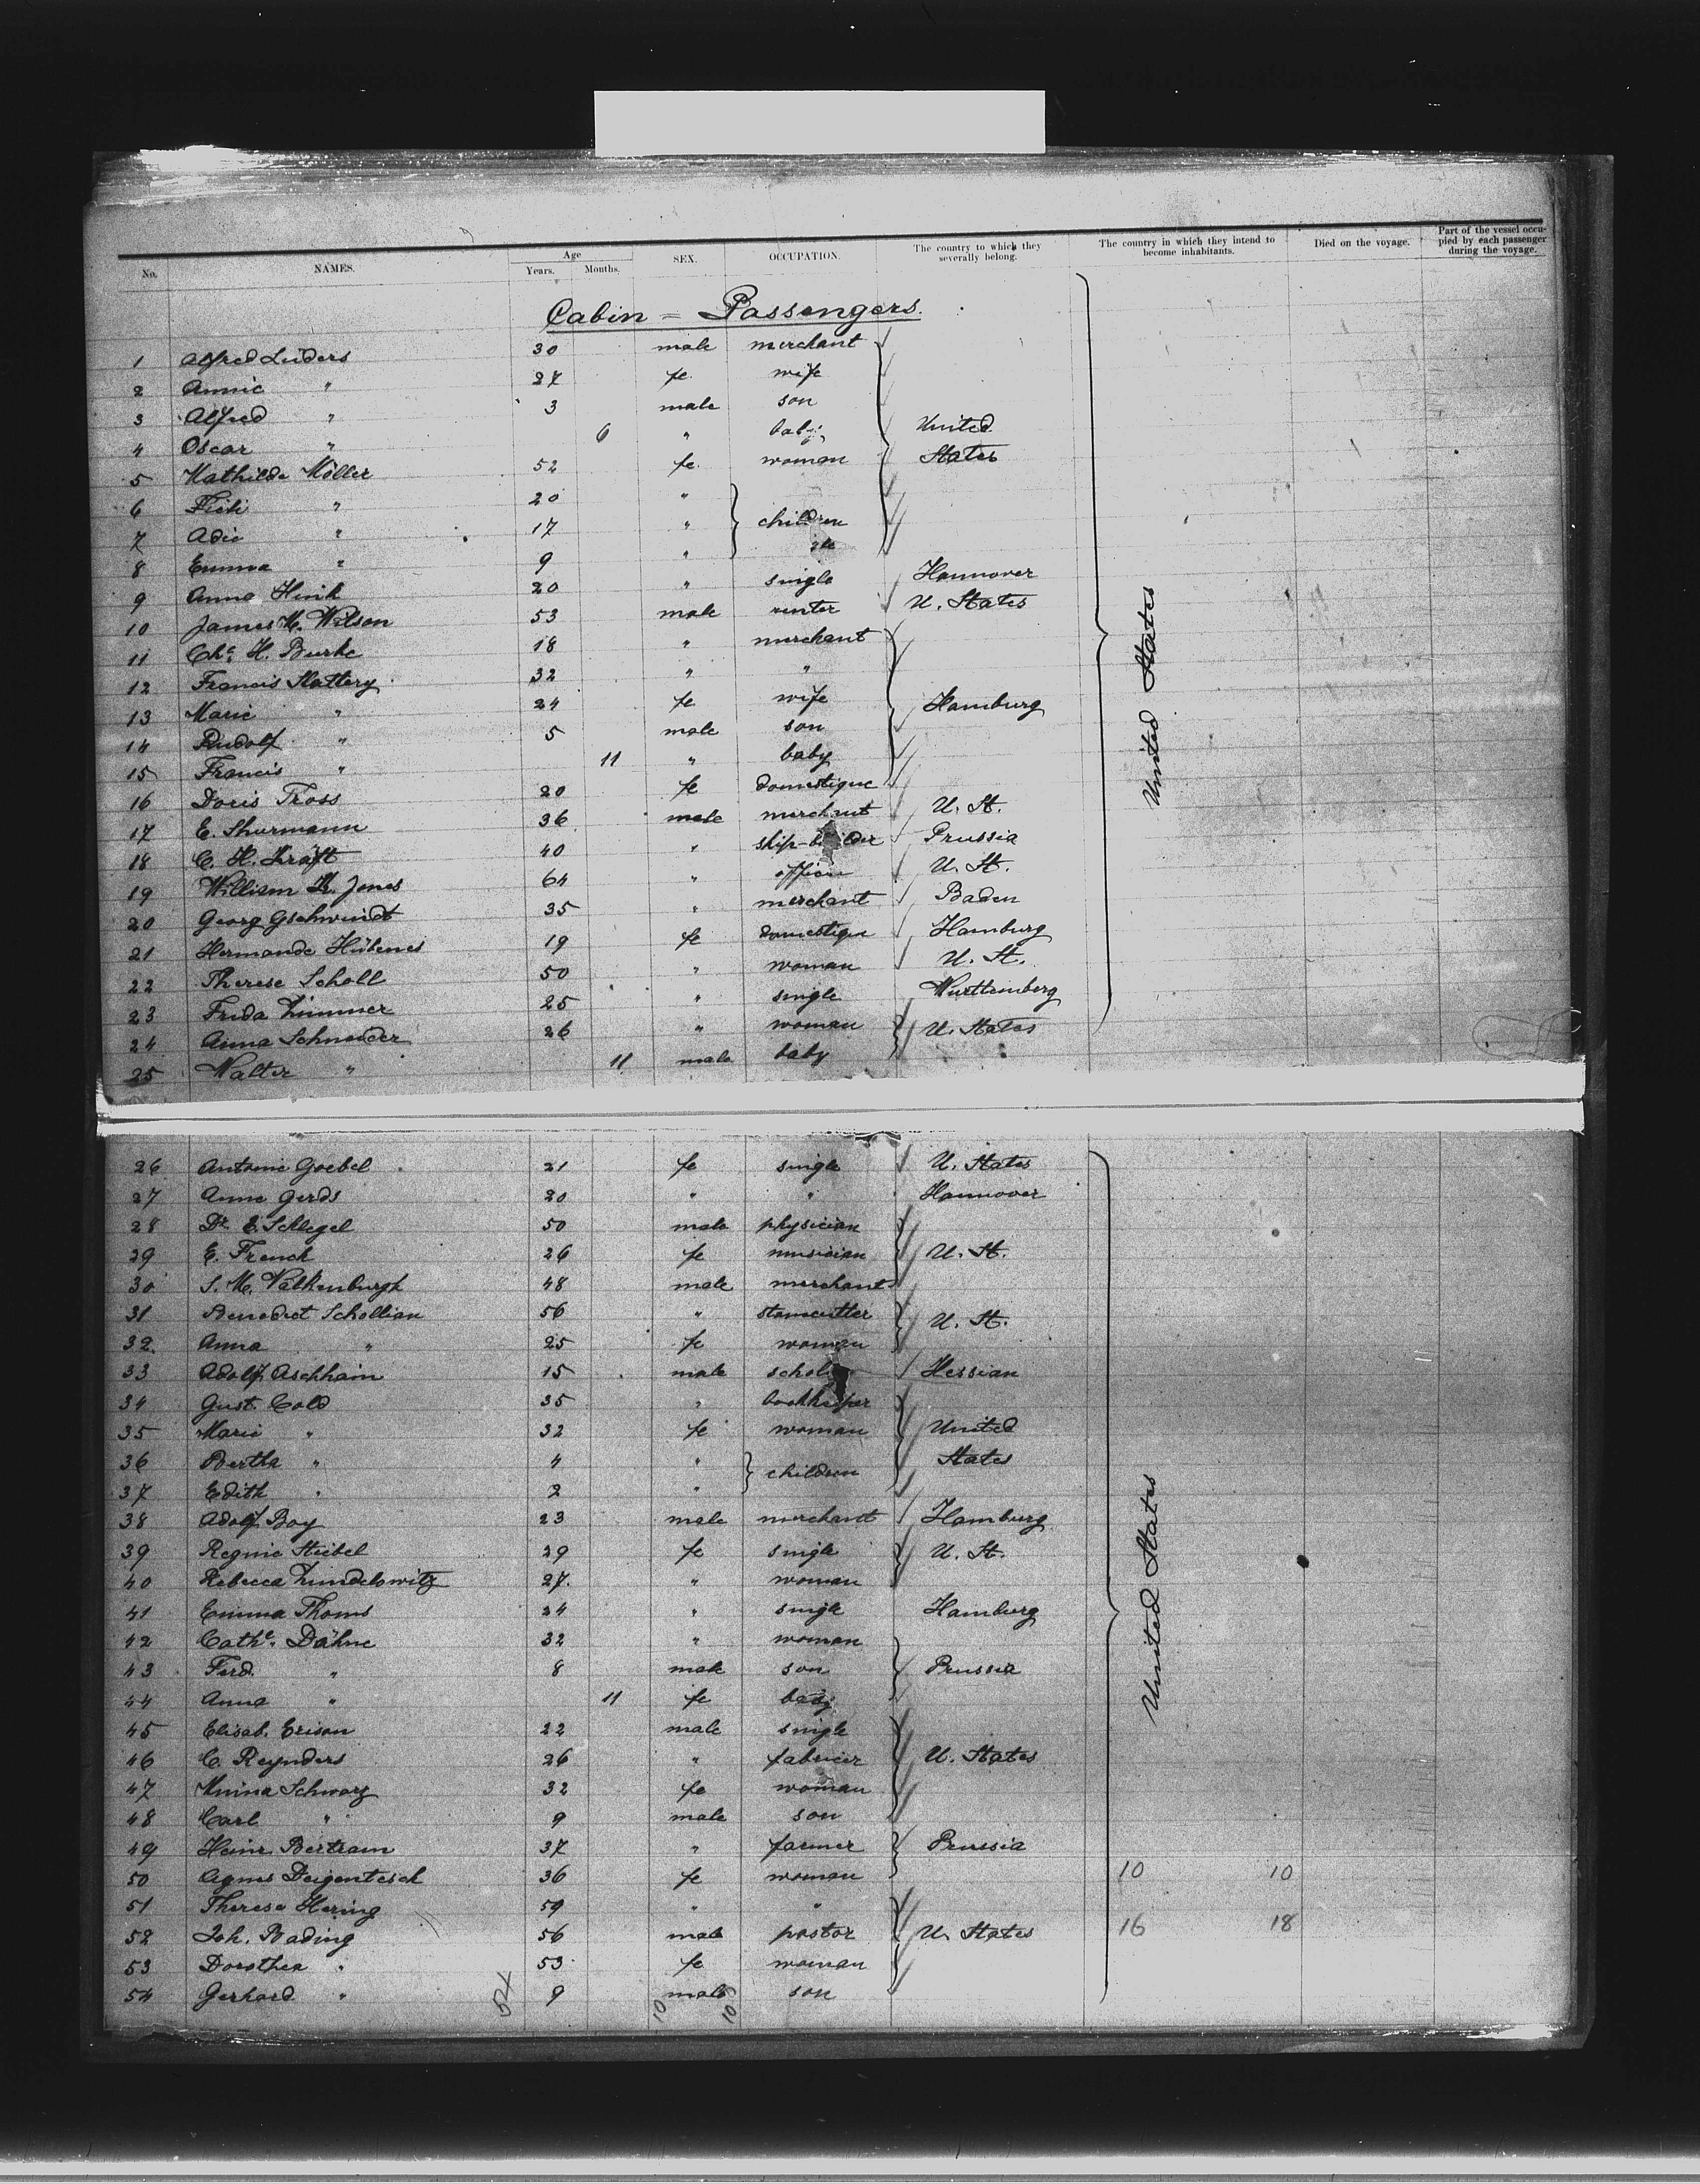 No. NAMES. Age Years. Months. SEX. OCCUPATION. The country to which they severally belong. The country in which they intend to become inhabitants. Died on the voyage. Part of the vessel occupied by each passenger during the voyage.
Cabin = Passengers.
1 Alfred Lüders 30 male merchant
2 Annie " 27 fe. wife
3 Alfred " 3 male son
4 Oscar " 6 " baby United
5 Mathilde Möller 52 fe. woman States
6 " 20 "
7 Adie " 17 " children
8 Emma " 9 "
9 Anna Hink 20 " single Hannover
10 James M. Wilson 53 male renter U. States
11 Chs. H. Burke 18 " merchant
12 Francis Slattery 32 " "
13 Marie " 24 fe wife Hamburg
14 Rudolf " 5 male son
15 Francis " 11 " baby
16 Doris Tross 20 fe domestique
17 E. Shurmann 36 male merchant U. St.
18 C. H. Kräft 40 " ship-builder Prussia
19 William H. Jones 64 " officer U. St.
20 Georg Gschwindt 35 " merchant Baden
21 Hermande Hübenes 19 fe domestique Hamburg
22 Therese Scholl 50 " woman U. St.
23 Frida Zimmer 25 " single Württemberg
24 Anna Schneider 26 " woman U. States
25 Walter " 11 male baby
United States
26 Antonie Goebel 21 fe single U. States
27 Anne Gerds 20 " " Hannover
28 Dr. E. Schlegel 50 male physician
29 E. French 26 fe musician U. St.
30 S. M. Valkenburgh 48 male merchant
31 Benedict Schollian 56 " stonecutter U. St.
32. Anna " 25 fe woman
33 Adolf Aschhaim 15 male scholar Hessian
34 Gust. Cold 35 " bookkeeper
35 Marie " 32 fe woman United
36 Bertha " 4 " children States
37 Edith " 2 "
38 Adolf Boy 23 male merchant Hamburg
39 Regnie Stiebel 29 fe single U. St.
40 Rebecca Zundelowitz 27. " woman
41 Emma Thoms 24 " single Hamburg
42 Cathe. Dähne 32 " woman
43 Ferd. " 8 male son Prussia
44 Anna " 11 fe baby
45 Elisab. Erison 22 male single
46 C. Reynders 26 " fabricer U. States
47 Minna Schwarz 32 fe woman
48 Carl " 9 male son
49 Heinr. Bertram 37 " farmer Prussia
50 Agnes Deigentesch 36 fe woman 10 10
51 Therese Hering 59 " "
52 Joh. Bading 56 male pastor U. States 16 18
53 Dorothea " 53 fe woman
54 Gerhard " 9 male son
United States
54 10 10